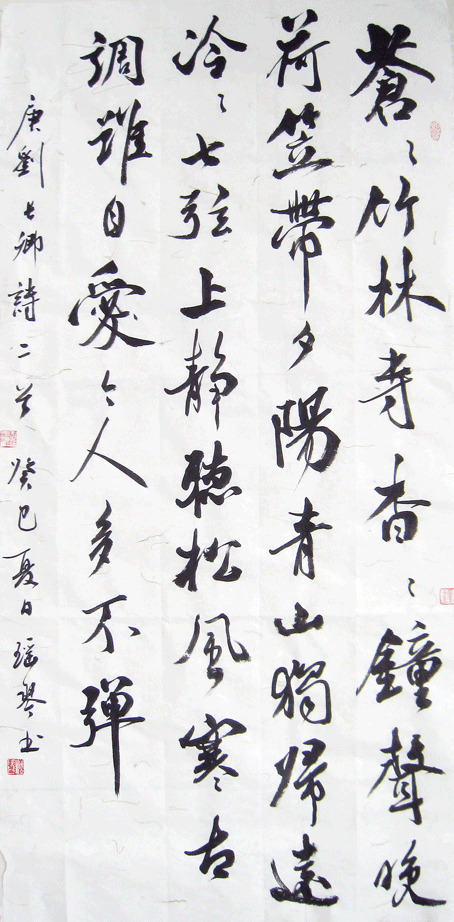 蒼〻竹林寺香〻鐘聲晚
荷笠帶夕陽青山獨歸遠
冷〻七弦上静聽松風寒古
調雖自愛今人多不彈
唐劉长卿詩二首 癸巳夏日瑶琴书